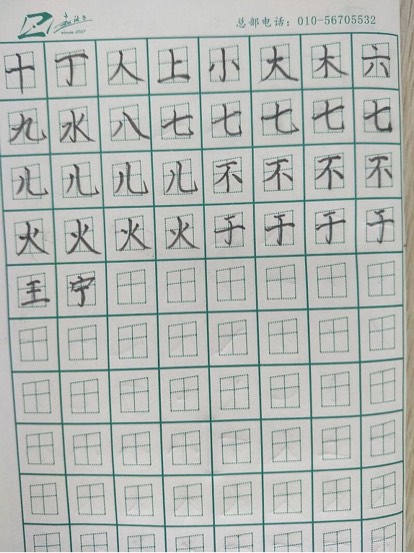 总部电话：010-56705532
十丁人上小大木六
九水八七七七七七
儿儿儿儿不不不不
火火火火于于于于
王宁